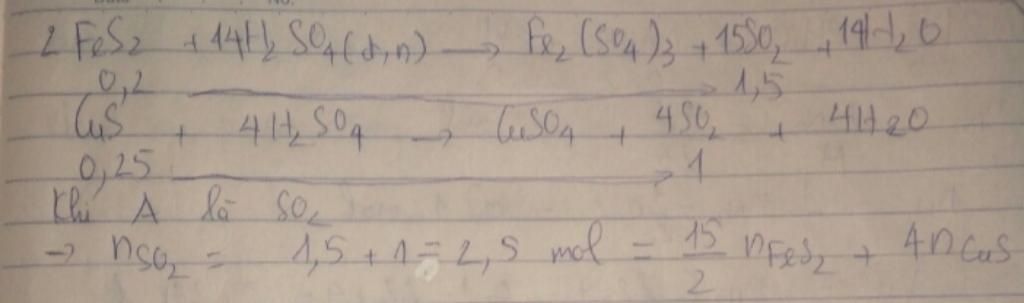 2 FeS₂ + 14H₂SO₄(đ,n) → Fe₂(SO₄)₃ + 15SO₂ + 14H₂O
0,2 → 1,5
CuS + 4H₂SO₄ → CuSO₄ + 4SO₂ + 4H₂O
0,25 → 1
Khí A là SO₂
→ nSO₂ = 1,5 + 1 = 2,5 mol = 15/2 nFeS₂ + 4nCuS